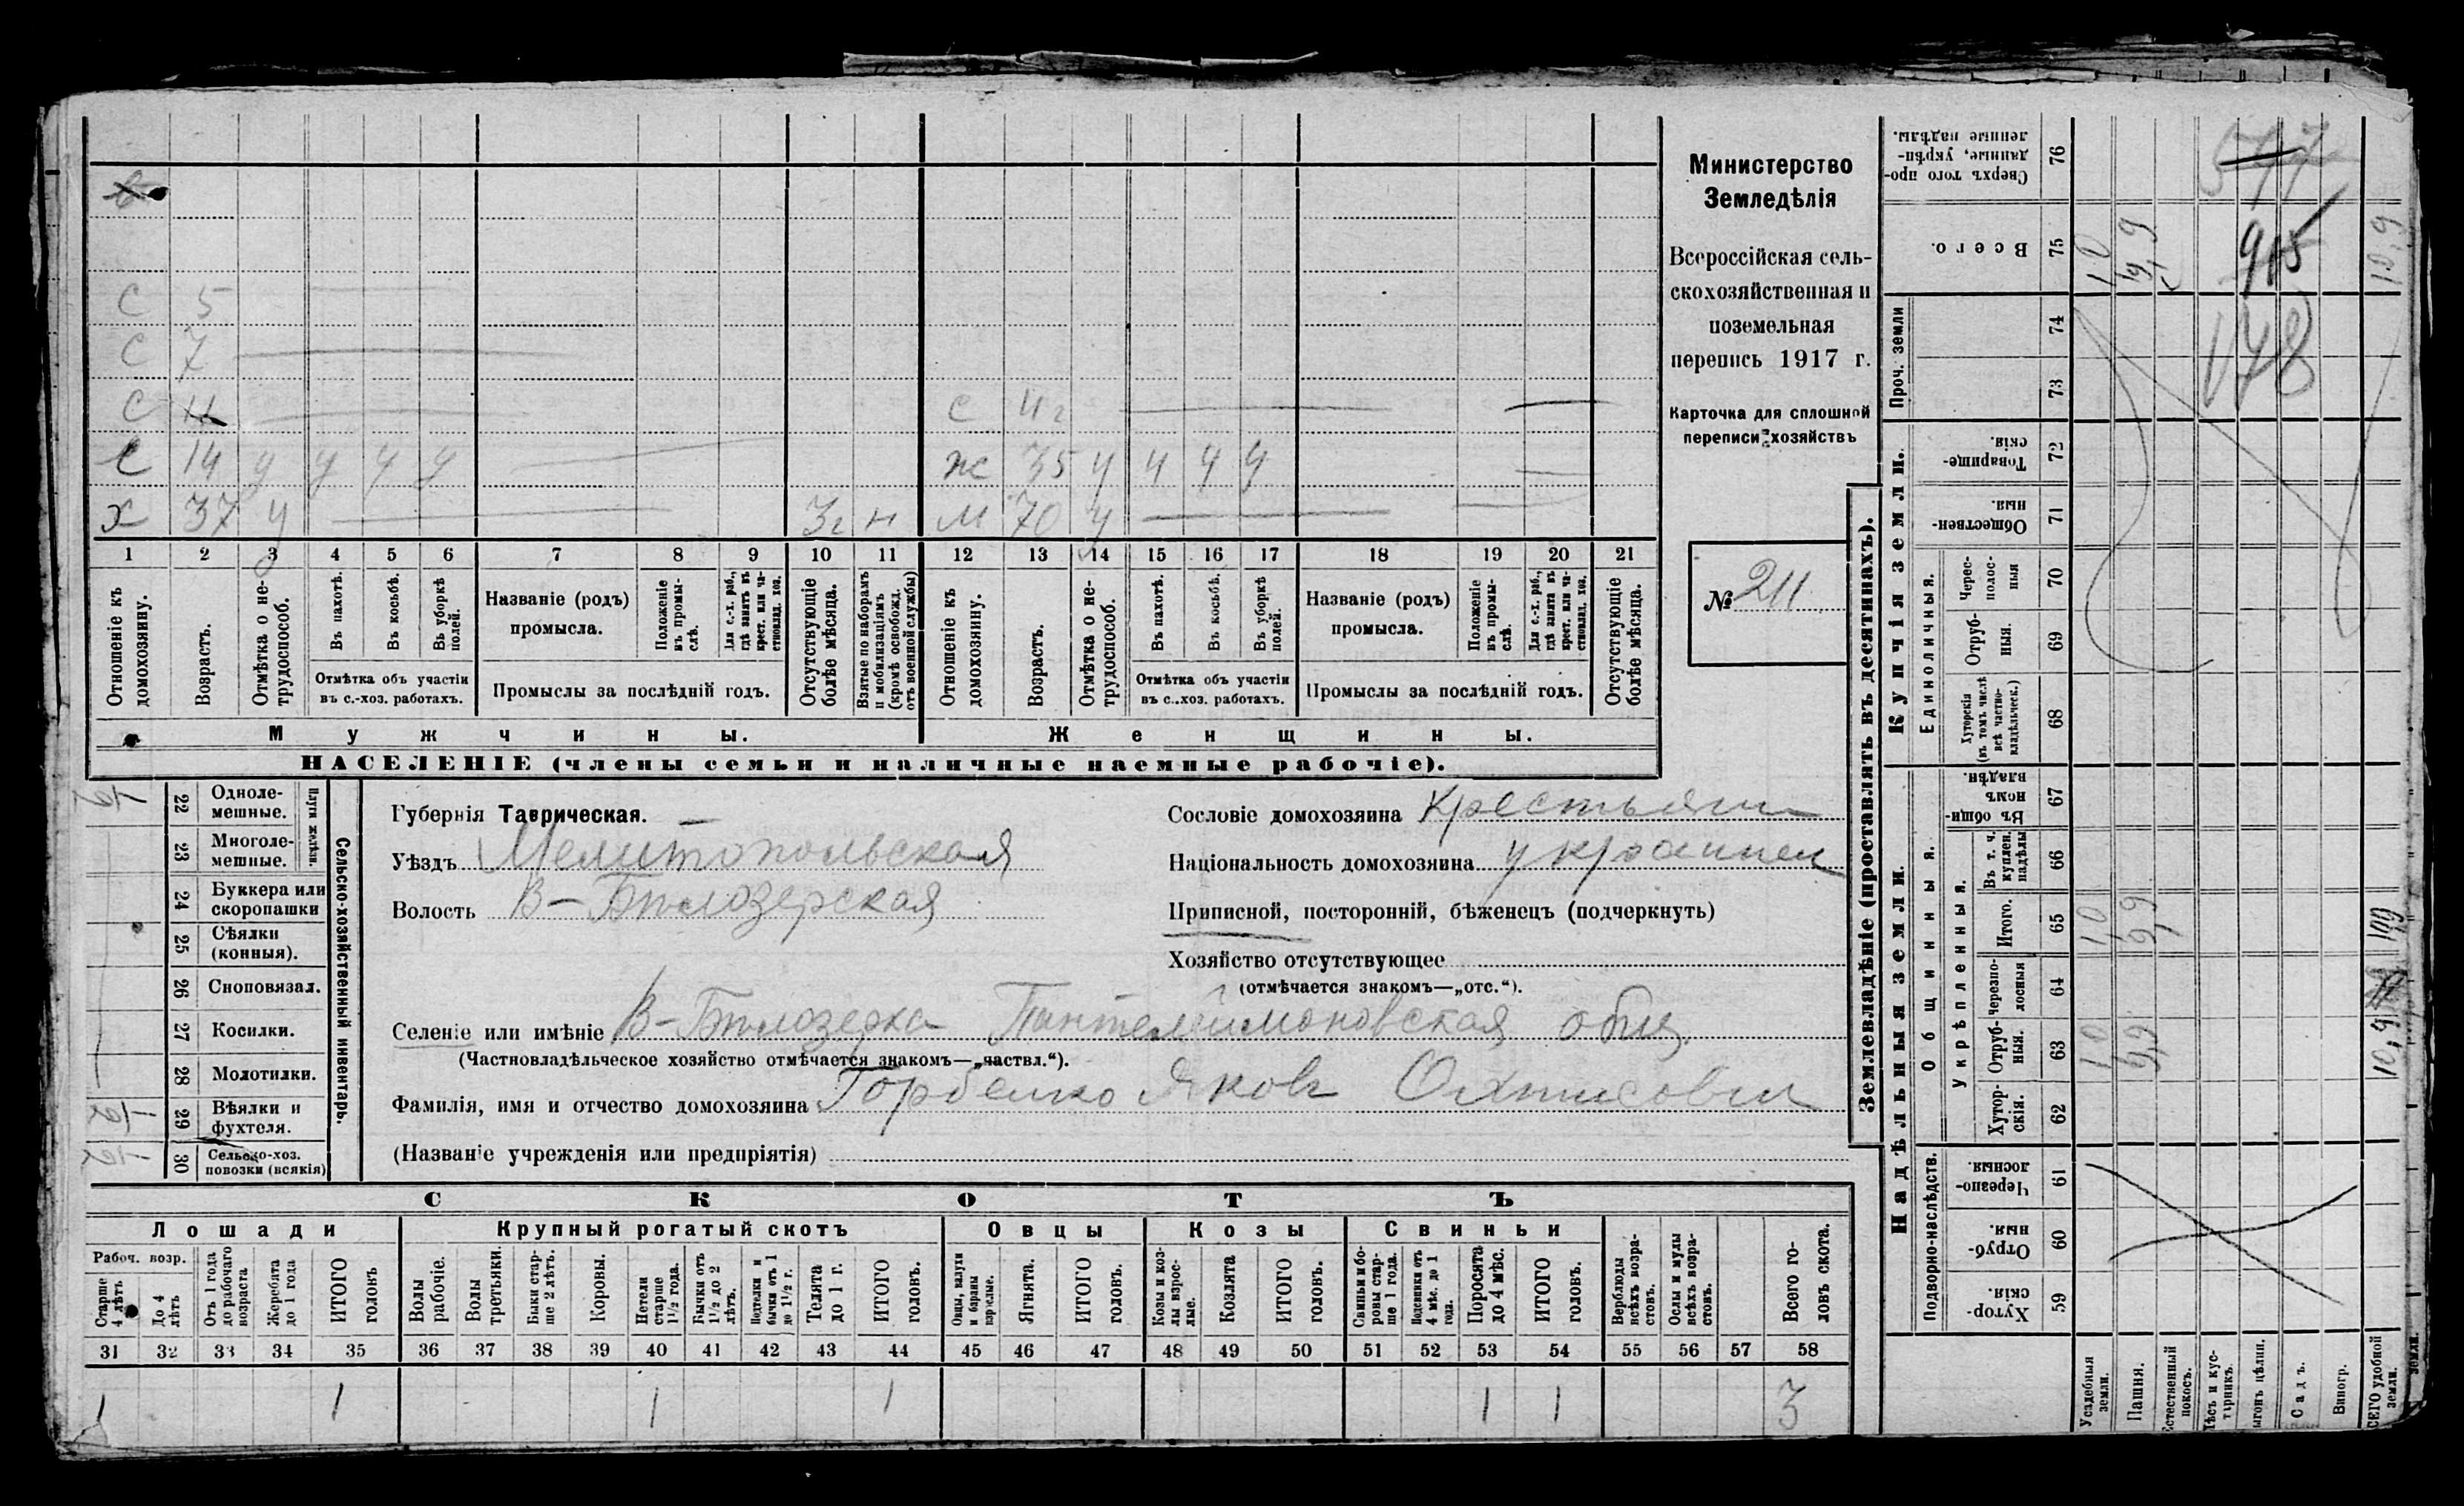 с 5
с 7
с 11
с 14 у у у у
х 37 у 3г н
с 11г
ж 35 у у у у
м 70 у
1 2 3 4 5 6 7 8 9 10 11 12 13 14 15 16 17 18 19 20 21
Отношеніе къ домохозяину.
Возрастъ.
Отмѣтка о не-
трудоспособ.
Въ пахотѣ.
Въ косьбѣ.
Въ уборкѣ полей.
Отмѣтка объ участіи
въ с.-хоз. работахъ.
Названіе (родъ)
промысла.
Положеніе
въ промы-
слѣ.
Для с.-х. раб.,
гдѣ занятъ въ
крест. или ча-
стновлад. хоз.
Промыслы за послѣдній годъ.
Отсутствующіе
болѣе мѣсяца.
Взятые по наборамъ
и мобилизаціямъ
(кромѣ освобожд.
отъ военной службы)
Отношеніе къ
домохозяину.
Возрастъ.
Отмѣтка о не-
трудоспособ.
Въ пахотѣ.
Въ косьбѣ.
Въ уборкѣ
полей.
Отмѣтка объ участіи
въ с..хоз. работахъ.
Названіе (родъ)
промысла.
Положеніе
въ промы-
слѣ.
Для с.-х. раб.,
гдѣ занята въ
крест. или ча-
стновлад. хоз.
Промыслы за послѣдній годъ.
Отсутствующіе
болѣе мѣсяца.
Мужчины.
Женщины.
НАСЕЛЕНІЕ (члены семьи и наличные наемные рабочіе).
Министерство
Земледѣлія
Всероссійская сель-
скохозяйственная и
поземельная
перепись 1917 г.
Карточка для сплошной
переписи хозяйствъ
№ 211
22 Одноле-
мешные.
23 Многоле-
мешные.
Плуги желѣзн.
24 Буккера или
скоропашки
25 Сѣялки
(конныя).
26 Сноповязал.
27 Косилки.
28 Молотилки.
29 Вѣялки и
фухтеля.
30 Сельско-хоз.
повозки (всякія)
Сельско-хозяйственный инвентарь.
Губернія Таврическая.
Уѣздъ Мелитопольская
Волость В-Бѣлозерская
Сословіе домохозяина крестьянин
Національность домохозяина украинец
Приписной, посторонній, бѣженецъ (подчеркнуть)
Хозяйство отсутствующее
(отмѣчается знакомъ—„отс.“).
Селеніе или имѣніе В-Бѣлозерка Пантелеймоновская общ.
(Частновладѣльческое хозяйство отмѣчается знакомъ—„частвл.“).
Фамилія, имя и отчество домохозяина Горбенко Яковъ
(Названіе учрежденія или предпріятія)
СКОТЪ
Лошади
Крупный рогатый скотъ
Овцы
Козы
Свиньи
Рабоч. возр.
Старше
4 лѣтъ
До 4
лѣтъ
Отъ 1 года
до рабочаго
возраста
Жеребята
до 1 года
ИТОГО
головъ
Волы
рабочіе.
Волы
третьяки.
Быки стар-
ше 2 лѣтъ.
Коровы.
Нетели
старше
1½ года.
Бычки отъ
1½ до 2
лѣтъ.
Подтелки и
бычки отъ 1
до 1½ г.
Телята
до 1 г.
ИТОГО
головъ.
Овцы, валухи
и бараны
взрослые.
Ягнята.
ИТОГО
головъ.
Козы и коз-
лы взрос-
лые.
Козлята
ИТОГО
головъ.
Свиньи и бо-
ровы стар-
ше 1 года.
Подсвинки отъ
4 мѣс. до 1
года.
Поросята
до 4 мѣс.
ИТОГО
головъ.
Верблюды
всѣхъ возра-
стовъ.
Ослы и мулы
всѣхъ возра-
стовъ.
Всего го-
ловъ скота.
31 32 33 34 35 36 37 38 39 40 41 42 43 44 45 46 47 48 49 50 51 52 53 54 55 56 57 58
1 1 1 1 1 1 3
Землевладѣніе (проставлять въ десятинахъ).
Сверхъ того про-
данные, укрѣп-
ленные надѣлы. 76
Всего. 75 1,0 9,9
Проч. земли 74 73
Купчія земли.
Товарище-
скія. 72
Обществен-
ныя. 71
Единоличныя.
Черес-
полос-
ныя 70
Отруб-
ныя. 69
Хуторскія
(въ томъ числѣ
всѣ частно-
владѣльческ.) 68
Надѣльныя земли.
Общинныя.
Въ общин-
номъ
владѣн. 67
Укрѣпленныя.
Въ т. ч.
куплен.
надѣлы 66
Итого. 65 1,0 9,9
Черезпо-
лосныя 64
Отруб-
ныя. 63 1,0 9,9
Хутор-
скія. 62
Подворно-наслѣдств.
Черезпо-
лосныя. 61
Отруб-
ныя. 60
Хутор-
скія. 59
Усадебныя
земли.
Пашня.
Естественный
покосъ.
Лѣсъ и кус-
тарникъ.
Садъ.
Виногр.
земли.
547
915
178
10,9
10,9